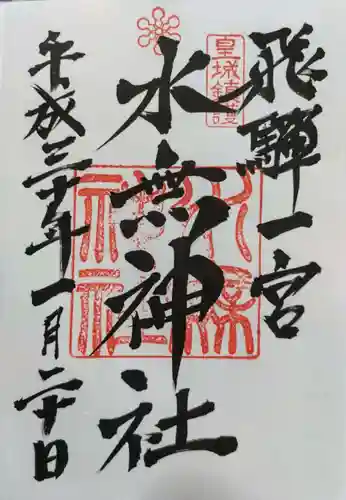 飛騨一宮
皇城鎮護
水無神社
平成三十年一月二十日